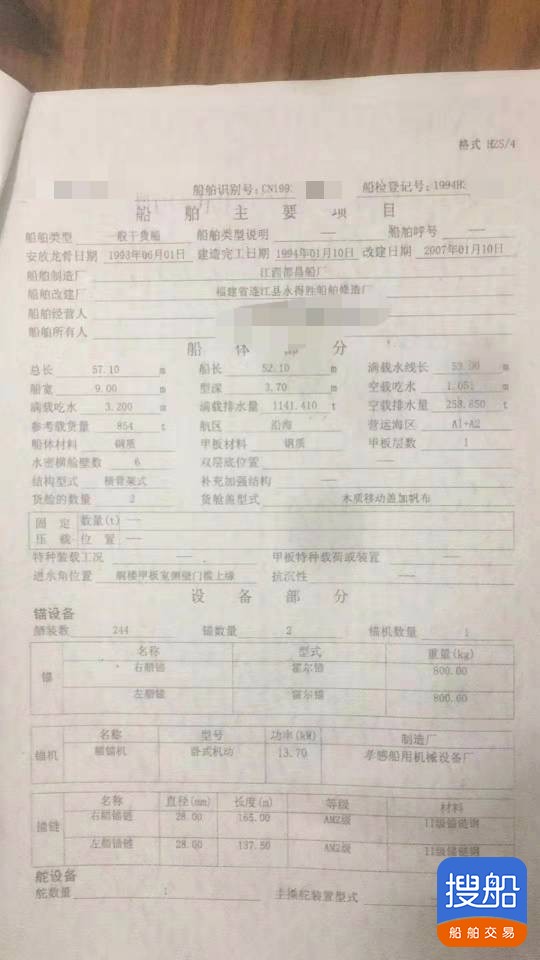 格式 HZS/4
船舶识别号:CN199 船检登记号:1994H
船舶主要项目
船舶类型 一般干货船 船舶类型说明 —— 船舶呼号 ——
安放龙骨日期 1993年06月01日 建造完工日期 1994年01月10日 改建日期 2007年01月10日
船舶制造厂 江西都昌船厂
船舶改建厂 福建省连江县永得胜船舶修造厂
船舶经营人
船舶所有人
船体部分
总长 57.10 m 船长 52.10 m 满载水线长 m
船宽 9.00 m 型深 3.70 m 空载吃水 1.051 m
满载吃水 3.200 m 满载排水量 1141.410 t 空载排水量 t
参考载货量 854 t 航区 沿海 营运海区 A1+A2
船体材料 钢质 甲板材料 钢质 甲板层数 1
水密横舱壁数 6 双层底位置 ——
结构型式 横骨架式 补充加强结构 ——
货舱的数量 2 货舱盖型式 木质移动盖加帆布
固定压载 数量(t) ——
位置 ——
特种装载工况 —— 甲板特种载荷或装置 ——
进水角位置 艉楼甲板室侧壁门槛上缘 抗沉性 ——
设备部分
锚设备
舾装数 244 锚数量 2 锚机数量 1
锚 名称 型式 重量(kg)
右艏锚 霍尔锚 800.00
左艏锚 霍尔锚 800.00
锚机 名称 型号 功率(kW) 制造厂
艏锚机 卧式机动 13.70 孝感船用机械设备厂
锚链 名称 直径(mm) 长度(m) 等级 材料
右艏锚链 28.00 165.00 AM2级 II级锚链钢
左艏锚链 28.00 137.50 AM2级 II级锚链钢
舵设备
舵数量 1 主操舵装置型式
搜船
船舶交易